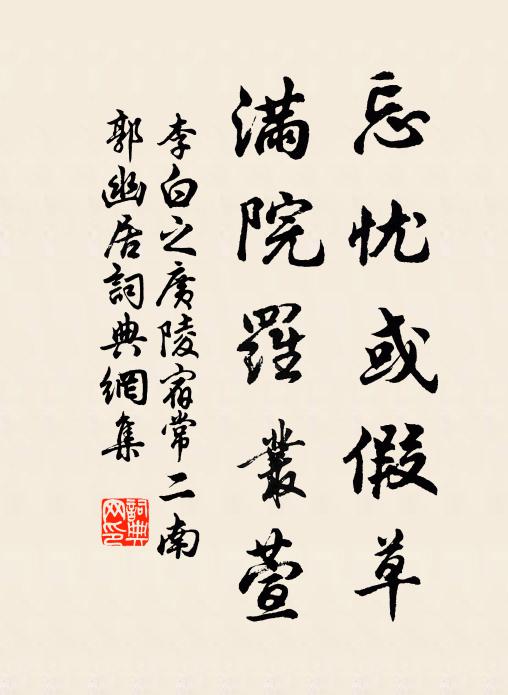 忘忧或假草
满院羅叢萱
李白之廣陵宿常二南
郭幽居詞典網集
詞典
网印